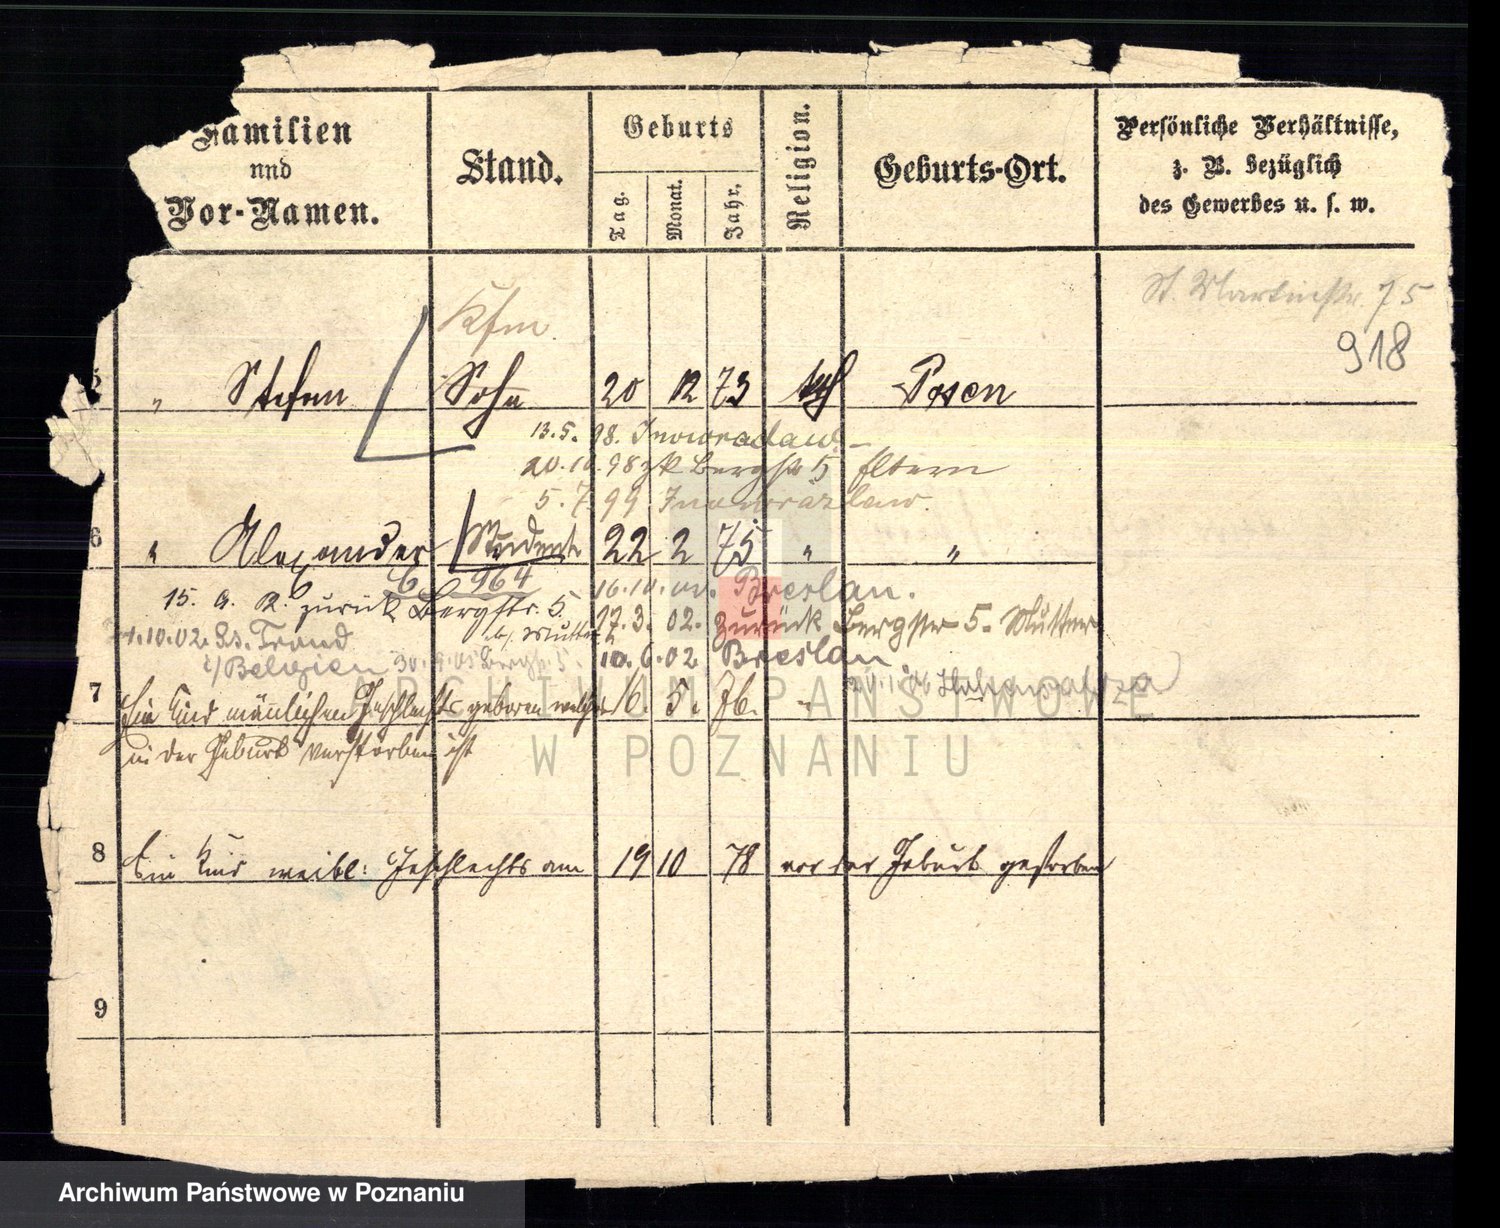 Familien
und
Vor-Namen.
Stand.
Geburts
Tag.
Monat.
Jahr.
Religion.
Geburts-Ort.
Persönliche Verhältnisse,
z. B. bezüglich
des Gewerbes u. s. w.
St. Martinstr. 75
918
Kfm
5 " Stefan Sohn 20 12 73 Posen
13.5.98. Inowrazlaw
20.10.98 zk Bergstr 5 Eltern
5.7.99 Inowrazlaw.
6 " Alexander Student 22 2 75 " "
964
16.10.01. Breslau.
15. 9. R. zurück Bergstr. 5.
b/ Mutter
17.3.02. zurück Bergstr 5. Mutter
1.10.02. St. Trond
i/Belgien
30.9.05 Bergstr 5.
10.6.02 Breslau
7 Ein Kind männlichen Geschlechts geboren welches 16. 5. 76.
in der Geburt verstorben ist
8 Ein Kind weibl: Geschlechts am 19 10 78 vor der Geburt gestorben
9
ARCHIWUM PAŃSTWOWE
W POZNANIU
Archiwum Państwowe w Poznaniu